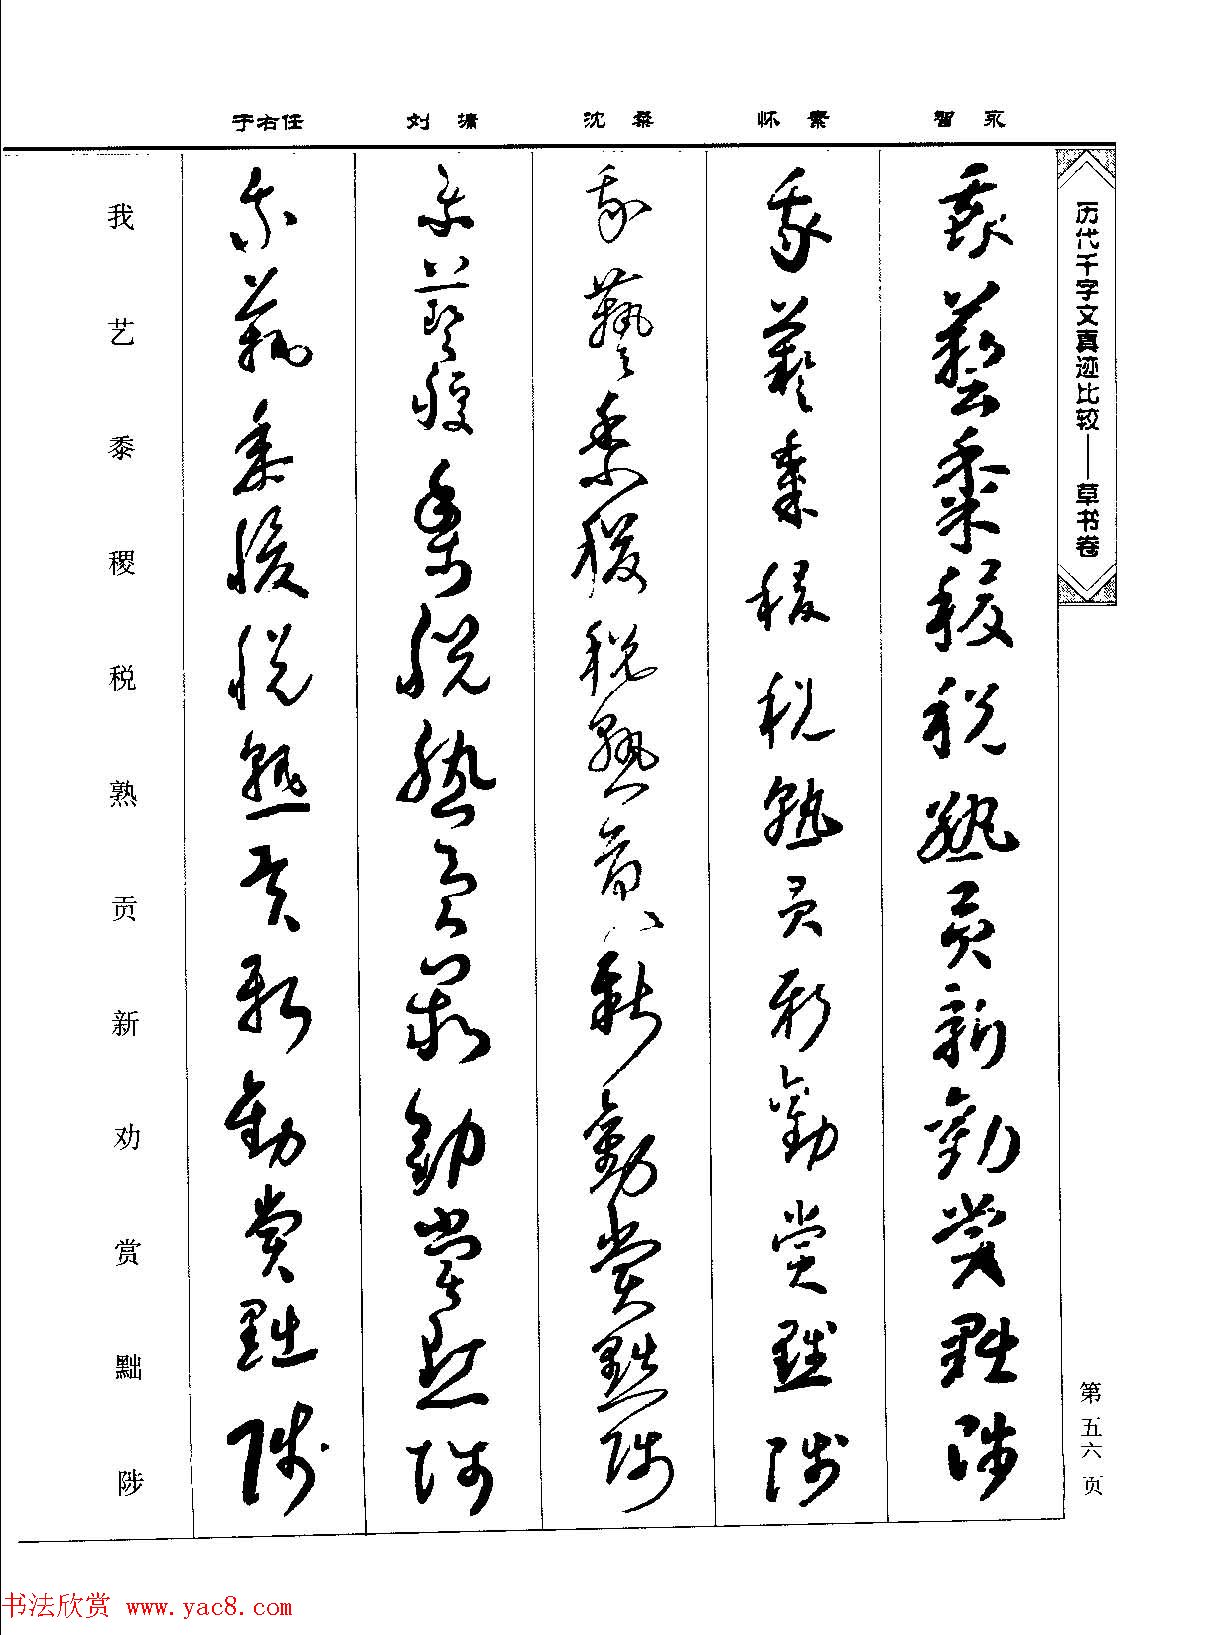 智永
怀素
沈粲
刘墉
于右任
历代千字文真迹比较——草书卷
第五六页
我艺黍稷税熟贡新劝赏黜陟
我艺黍稷税熟贡新劝赏黜陟
我艺黍稷税熟贡新劝赏黜陟
我艺稷黍税熟贡新劝赏黜陟
我艺黍稷税熟贡新劝赏黜陟
我艺黍稷税熟贡新劝赏黜陟
书法欣赏 www.yac8.com